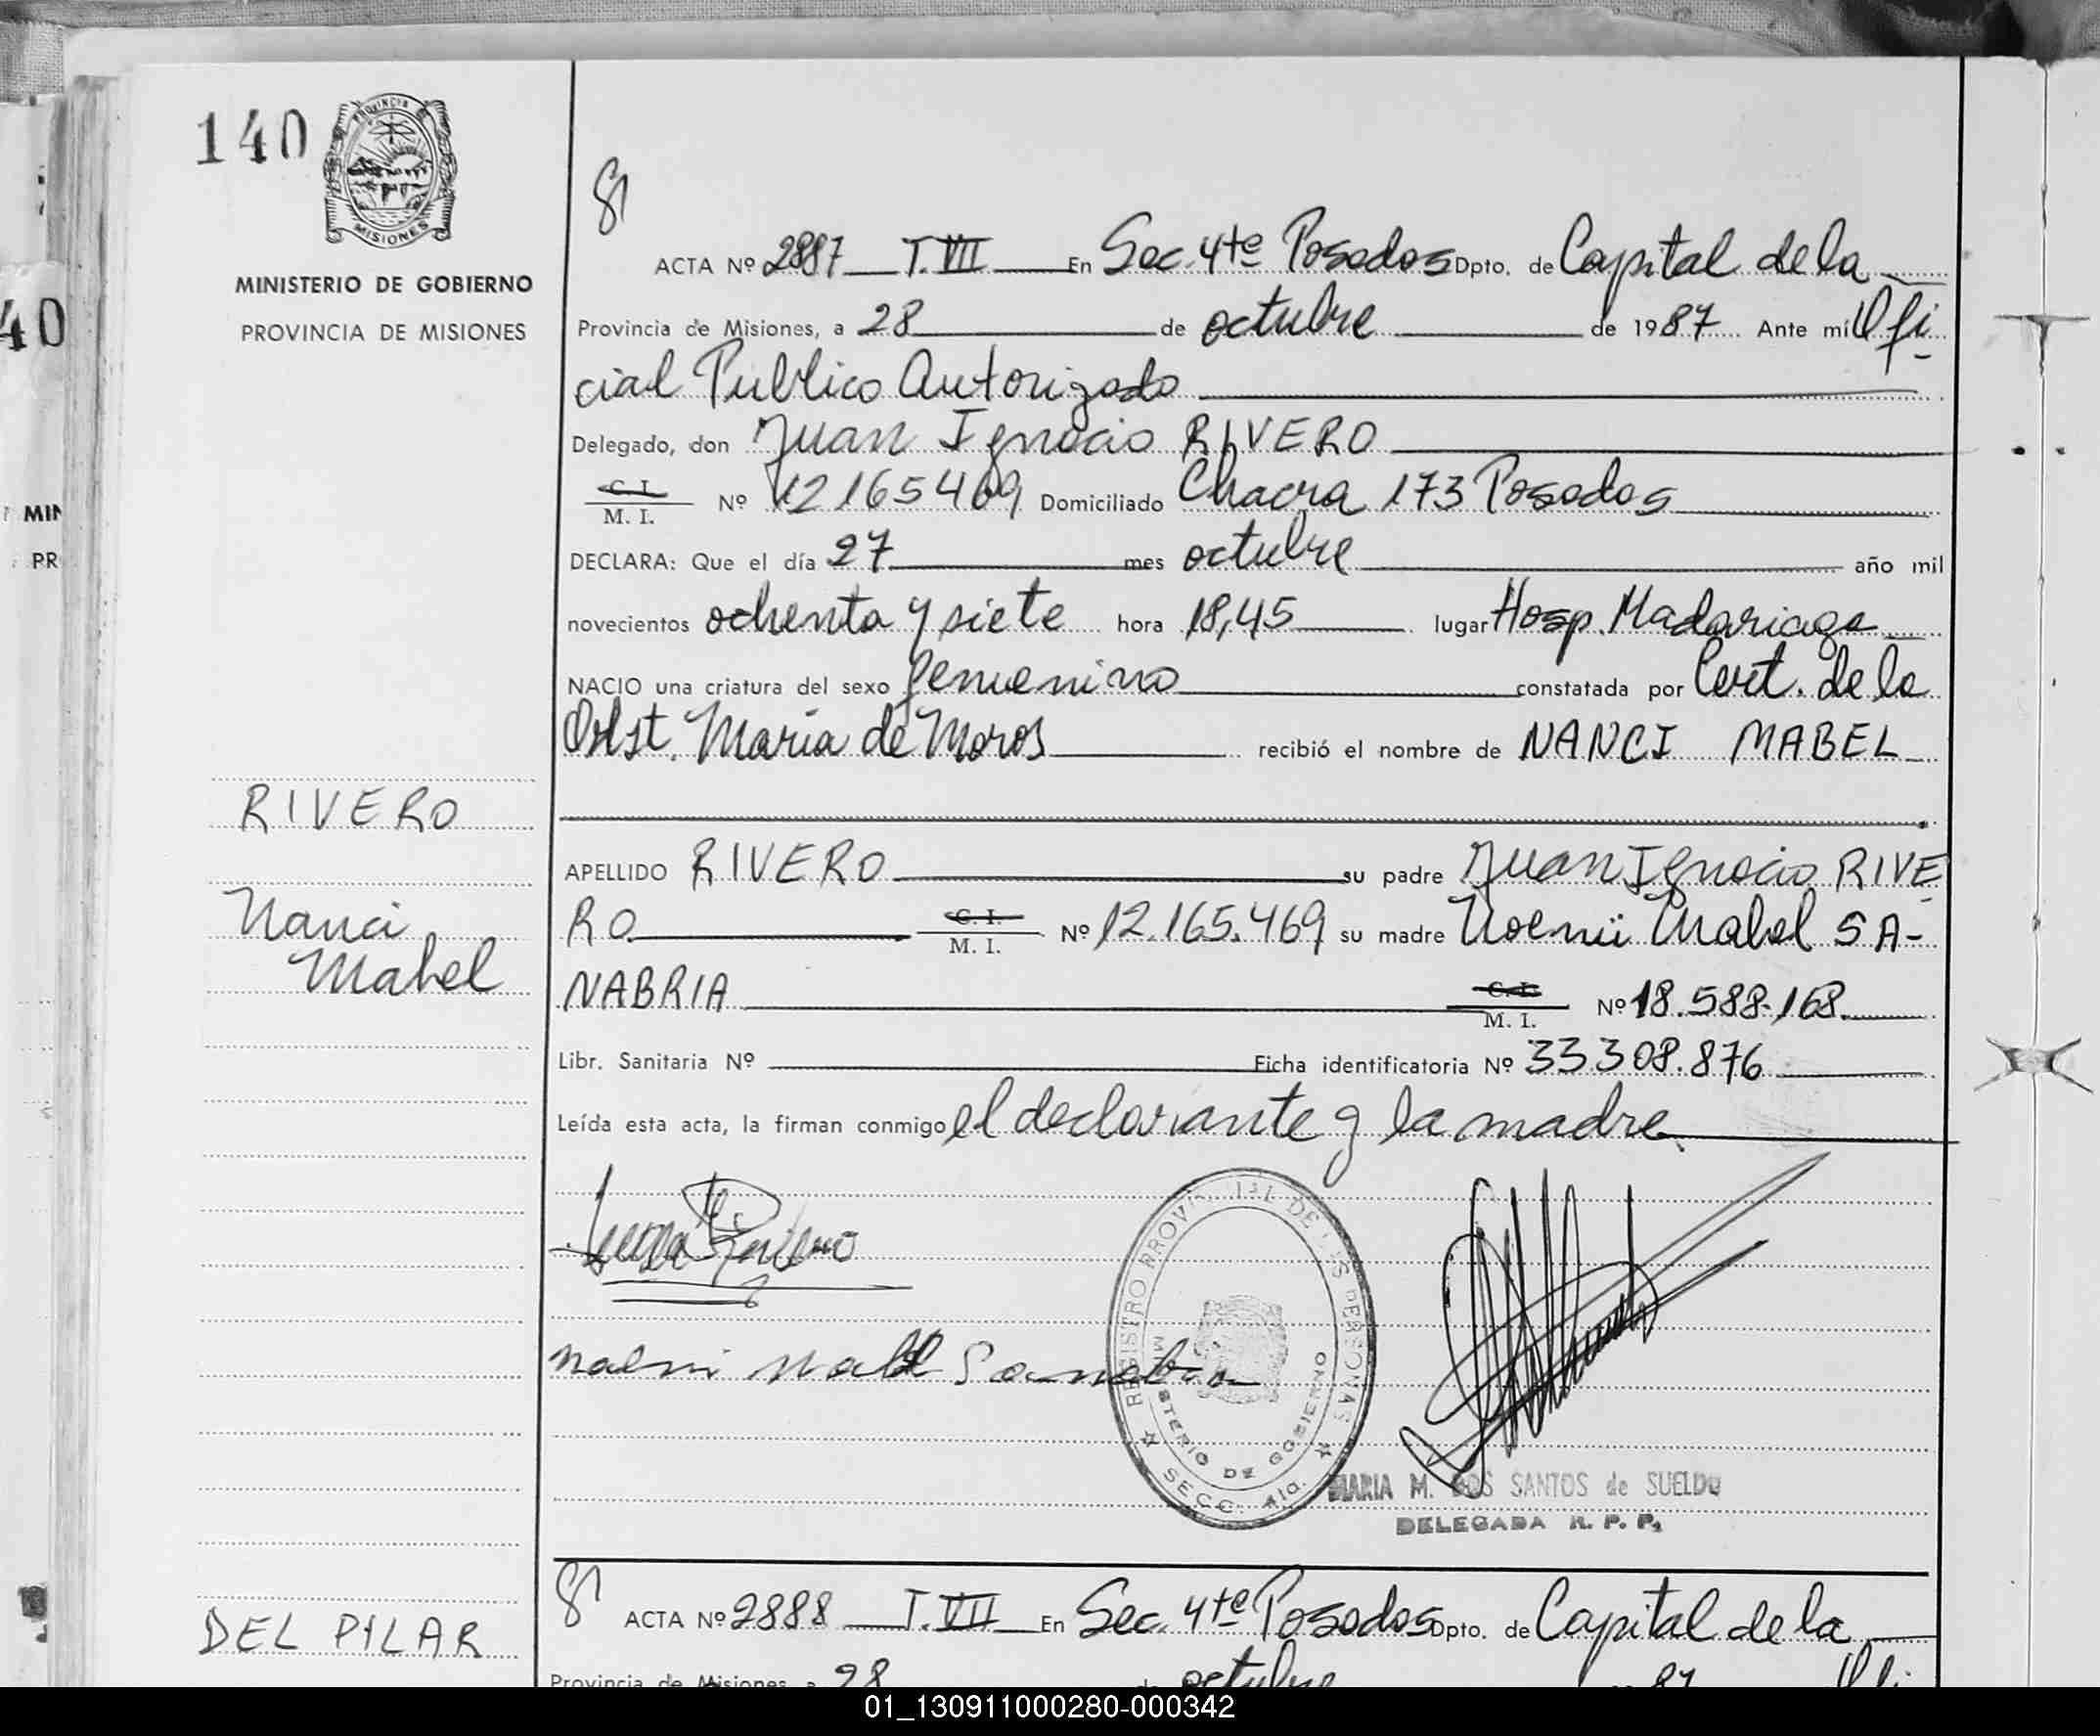 140
PROVINCIA
MISIONES
MINISTERIO DE GOBIERNO
PROVINCIA DE MISIONES
40
MIN
PR
ACTA Nº 2887 T. VII En Sec. 4ta Posadas Dpto. de Capital de la
Provincia de Misiones, a 28 de octubre de 1987 Ante mí Ofi-
cial Publico Autorizado
Delegado, don Juan Ignacio RIVERO
C. I. M. I. Nº 12165469 Domiciliado Chacra 173 Posadas
DECLARA: Que el día 27 mes octubre año mil
novecientos ochenta y siete hora 18,45 lugar Hosp. Madariaga
NACIO una criatura del sexo femenino constatada por Cert. de la
Obst. María de Moros recibió el nombre de NANCI MABEL
RIVERO
Nanci
Mabel
APELLIDO RIVERO su padre Juan Ignacio RIVE-
RO C. I. M. I. Nº 12.165.469 su madre Noemii Mabel SA-
NABRIA C. I. M. I. Nº 18.588.168
Libr. Sanitaria Nº Ficha identificatoria Nº 33308.876
Leída esta acta, la firman conmigo el declarante y la madre
noemi Mabel Sanabria
REGISTRO PROVINCIAL DE LAS PERSONAS
MINISTERIO DE GOBIERNO
SECC. 4ta.
MARIA M. DOS SANTOS de SUELDO
DELEGADA R. P. P.
ACTA Nº 2888 T. VII En Sec. 4ta Posadas Dpto. de Capital de la
DEL PILAR
Provincia de Misiones a 28 de octubre 87 Ofi
01_130911000280-000342